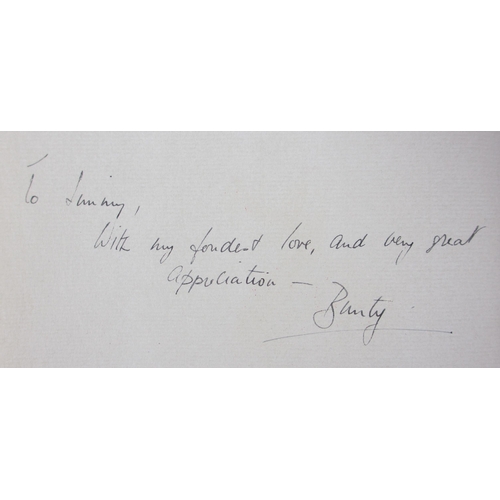 To Jimmy,
With my fondest love, and very great
appreciation —
Bunty